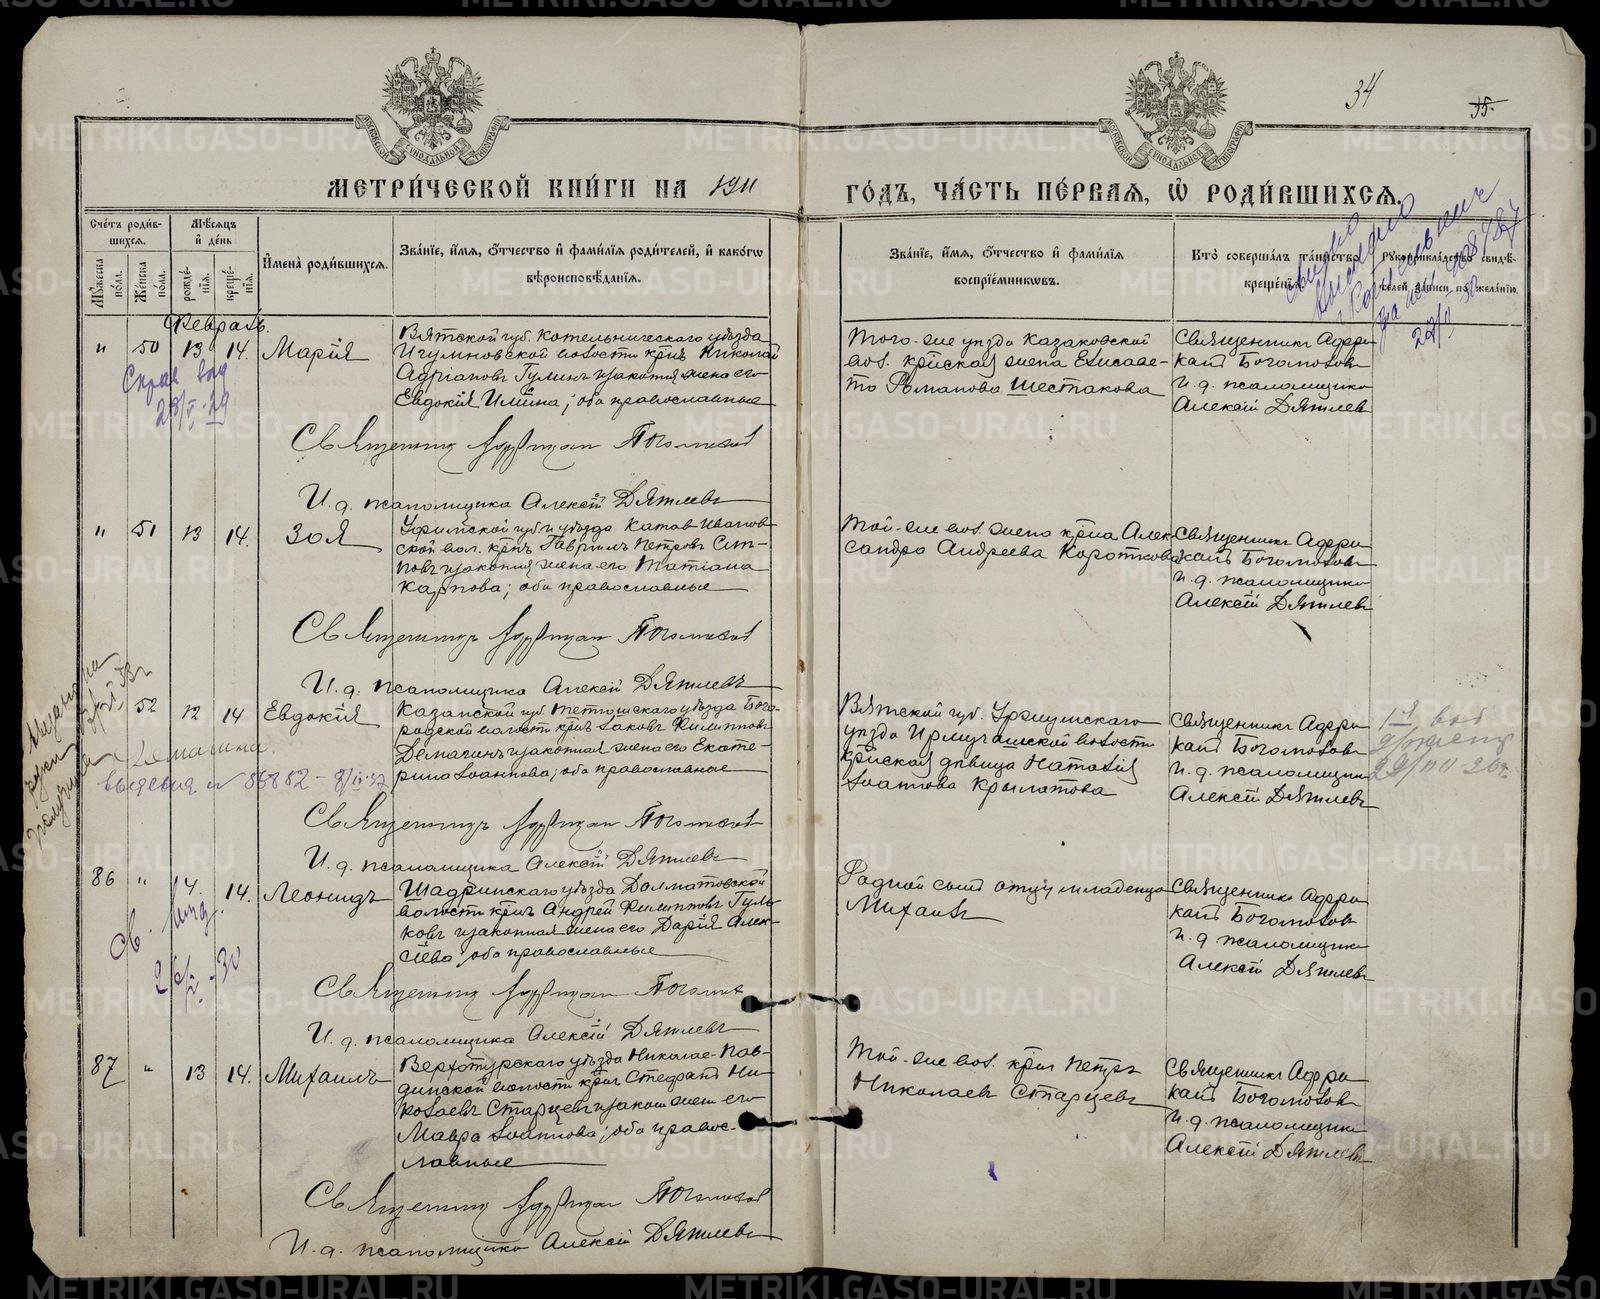 34
35.
МЕТРИ́ЧЕСКОЙ КНИ́ГИ НА 1911
ГО́ДЪ, ЧА́СТЬ ПЕ́РВАЯ, Ѡ҆ РОДИ́ВШИХСЯ.
Сче́тъ роди́в-
шихся.
Му́жеска
по́ла.
Же́нска
по́ла.
Мѣ́сяцъ
и҆ де́нь
рожде́-
нїя.
креще́-
нїя.
И҆мена̀ роди́вшихся.
Зва́нїе, и҆́мя, ѻ҆́тчество и҆ фами́лїя роди́телей, и҆ како́гѡ
вѣроисповѣ́данїя.
Зва́нїе, и҆́мя, ѻ҆́тчество и҆ фами́лїя
воспрїе́мникѡвъ.
Кто̀ соверша́лъ та́инство
креще́нїя.
Рꙋкоприкла́дство свидѣ́-
телей за́писи по жела́нїю.
Февраль.
" 50 13 14. Марія
Вятской губ. Котельническаго уѣзда
Игумновской волости крнъ Николай
Адріановъ Гулинъ и законная жена его
Евдокія Ильина; оба православные
Того-же уѣзда Казаковской
вол. крйская жена Елисаве-
та Романова Шестакова
Священникъ Афри-
канъ Боголюбовъ
И. д. псаломщика
Алексій Дятлевъ
Священникъ Африкан Боголюбов
И. д. псаломщика Алексій Дятлевъ
" 51 13 14. Зоя
Уфимской губ. и уѣзда Катав-Иванов-
ской вол. крнъ Гавріилъ Петровъ
и законная жена его Татіана
Карпова; оба православные
Той-же вол. жена крна Алек-
сандра Андреева Короткова
Священникъ Афри-
канъ Боголюбовъ
И. д. псаломщика
Алексій Дятлевъ
Священникъ Африкан Боголюбов
И. д. псаломщика Алексій Дятлевъ
" 52 12 14 Евдокія
Казанской губ. Тетюшскаго уѣзда Бого-
родской волости крнъ Іаковъ Филиппов
Демагинъ и законная жена его Екате-
рина Іоаннова; оба православные
Вятской губ. Уржумскаго
уѣзда волости
крйская дѣвица Наталія
Іоаннова Крылатова
Священникъ Афри-
канъ Боголюбовъ
И. д. псаломщика
Алексій Дятлевъ
Священникъ Африкан Боголюбов
И. д. псаломщика Алексій Дятлевъ
86 " 14. 14. Леонидъ
Шадринскаго уѣзда Долматовской
волости крнъ Андрей Филипповъ Гуль-
ковъ и законная жена его Дарія Алек-
сіева; оба православные
Родной сынъ отцу младенца
Михаилъ
Священникъ Афри-
канъ Боголюбовъ
И. д. псаломщика
Алексій Дятлевъ
Священникъ Африкан Боголюбов
И. д. псаломщика Алексій Дятлевъ
87 " 13 14. Михаилъ
Верхотурскаго уѣзда Николае-Пав-
динской волости крнъ Стефанъ Ни-
колаевъ Старцевъ и закон. жена его
Мавра Іоаннова; оба правос-
лавные
Той-же вол. крнъ Петръ
Николаевъ Старцевъ
Священникъ Афри-
канъ Боголюбовъ
И. д. псаломщика
Алексій Дятлевъ
Священникъ Африкан Боголюбов
И. д. псаломщика Алексій Дятлевъ
METRIKI.GASO-URAL.RU